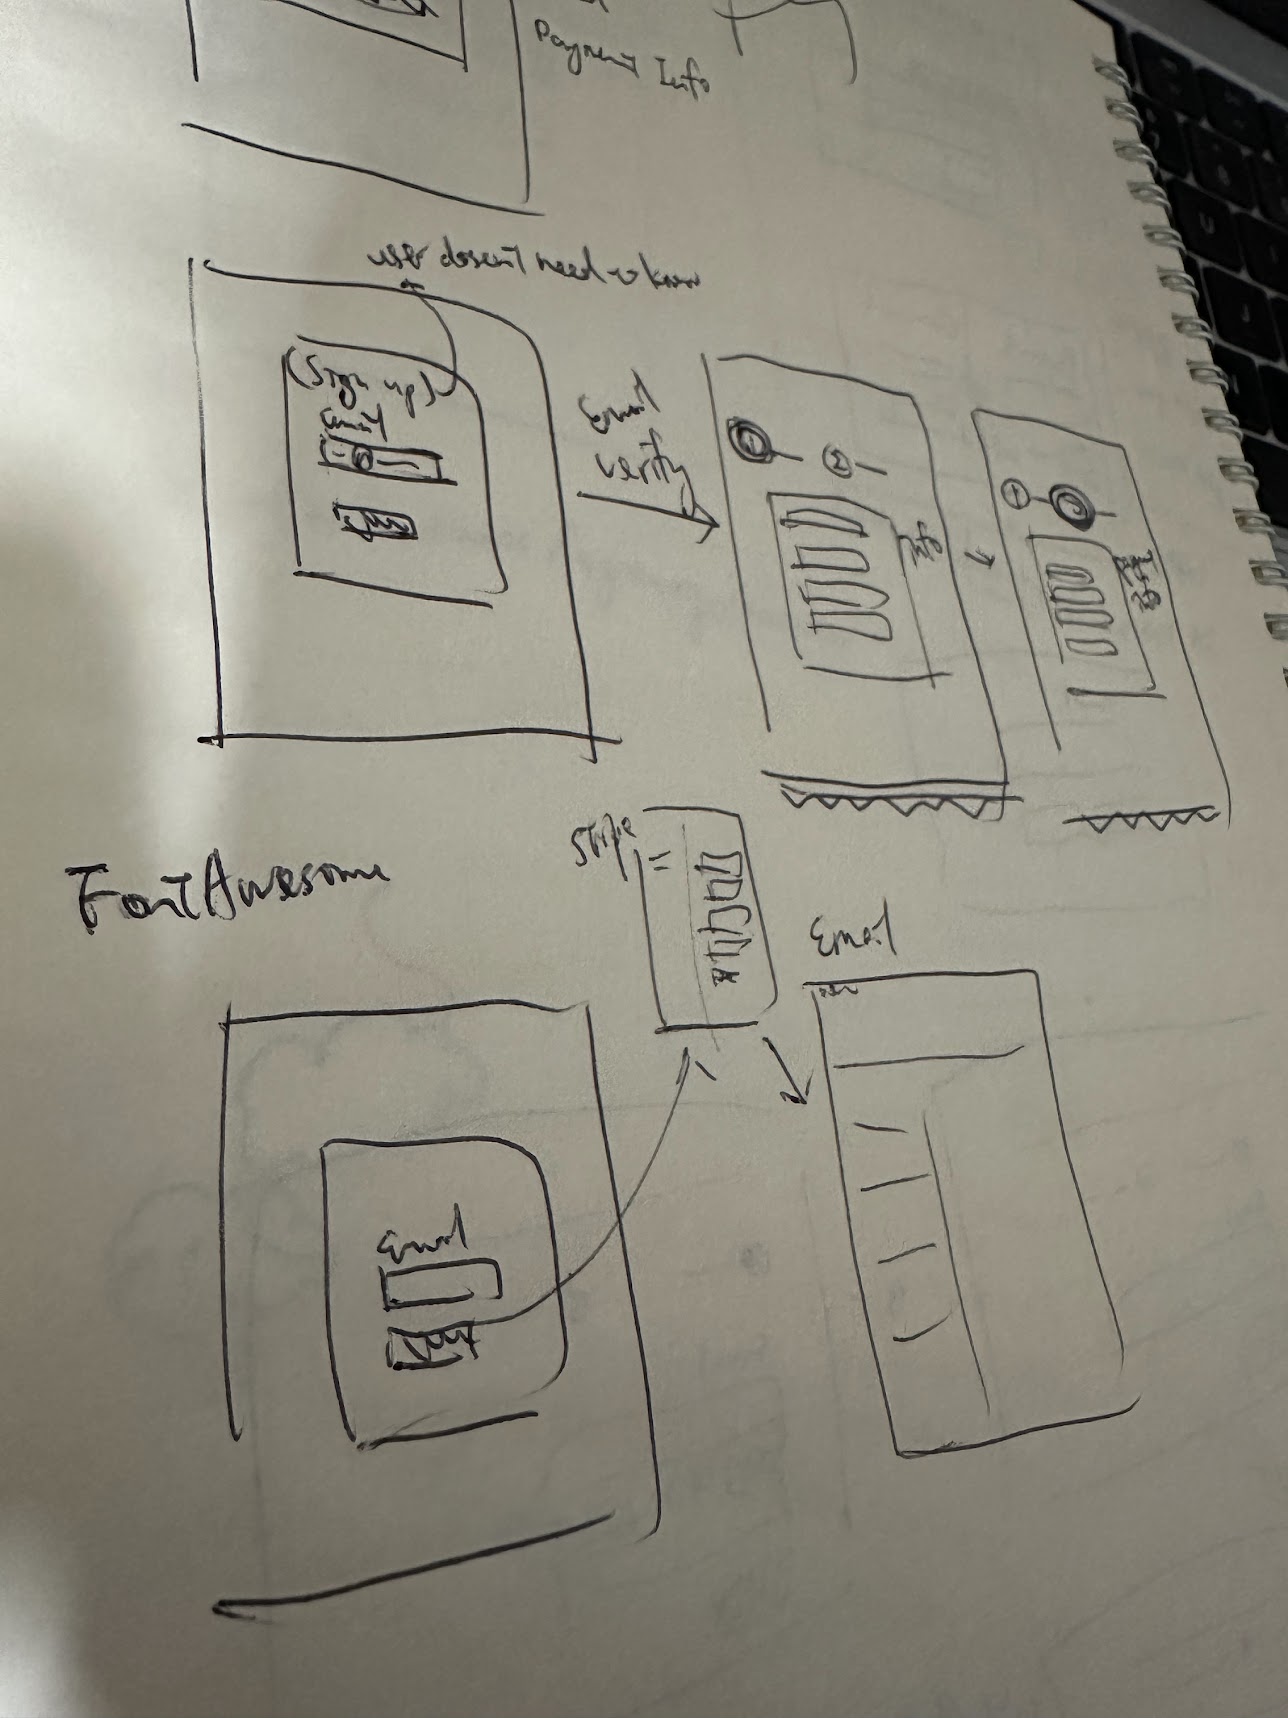 Payment Info
user doesn't need to know
(Sign up)
Email
Email
verify
1
2
Info
1
2
Stripe
FontAwesome
Email
Email